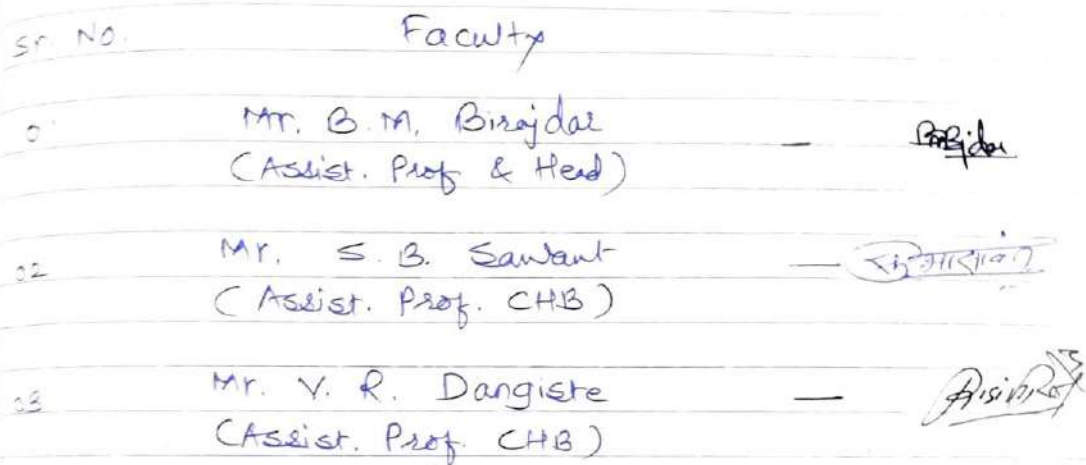 Sr. No. Faculty
0 Mr. B. M. Birajdar —
(Assist. Prof & Head)
02 Mr. S. B. Sawant —
(Assist. Prof. CHB)
03 Mr. V. R. Dangiste —
(Assist. Prof. CHB)